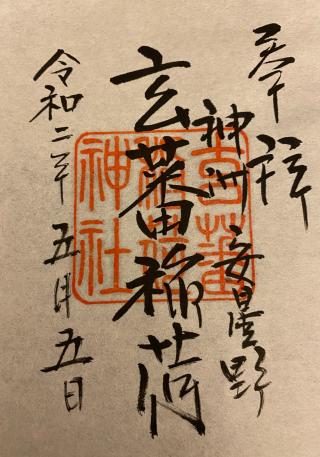 奉拝
神州安曇野
玄蕃稲荷
令和二年五月五日
神社